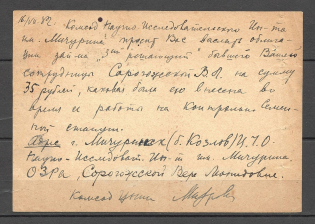 Комсод Научно-Исследовательского Ин-та
им. Мичурина просит Вас выслать облига-
ции займа бывшего Вашего
сотрудницы Сорогожской В.Л. на сумму
35 рублей, каковая была ею внесена во
время её работы на Контрольно Семен-
ной станции.
Адрес г. Мичуринск (б. Козлов) Ц.Ч.О.
Научно-Исследоват. Ин-т им. Мичурина,
ОЗРа, Сорогожской Вере Леонидовне.
Комсод